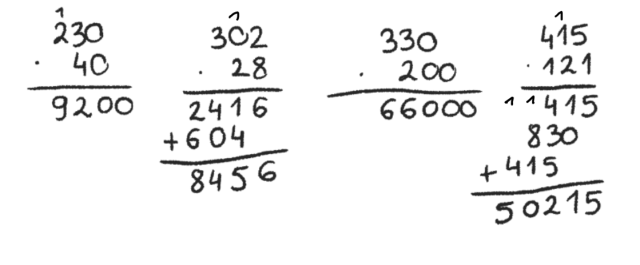 1
230
· 40
9200
1
302
· 28
2416
+604
8456
330
· 200
66000
1
415
· 121
1 1 415
830
+415
50215